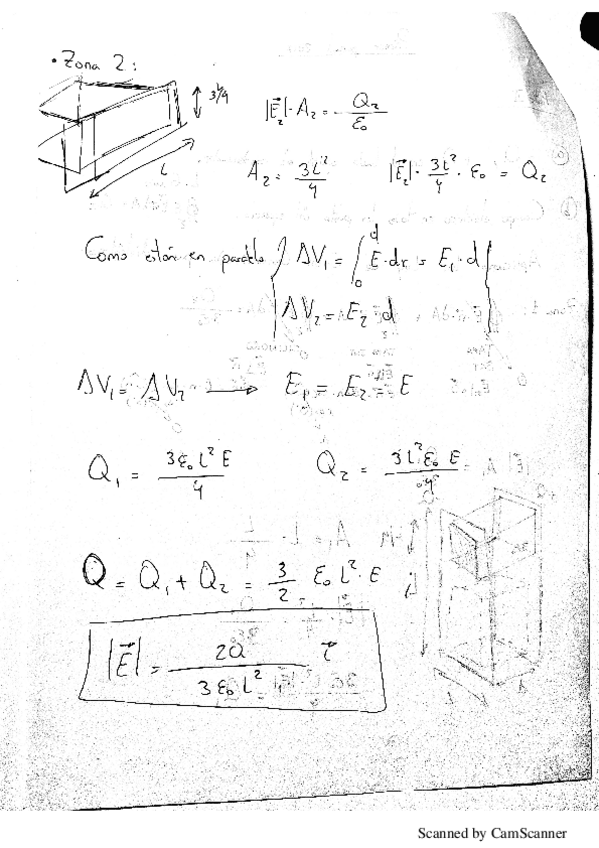 • Zona 2:
3L/4
L
|E⃗₂|·A₂ = Q₂/ε₀
A₂ = 3L²/4    |E⃗₂|·3L²/4·ε₀ = Q₂
Como están en paralelo { ΔV₁ = ∫₀ᵈ E·dr = E₁·d
ΔV₂ = E₂·d
ΔV₁ = ΔV₂ → E₁ = E₂ = E
Q₁ = 3ε₀L²E/4    Q₂ = 3L²ε₀E/4
Q = Q₁ + Q₂ = 3/2 ε₀L²·E
|E⃗| = 2Q/3ε₀L²
Scanned by CamScanner